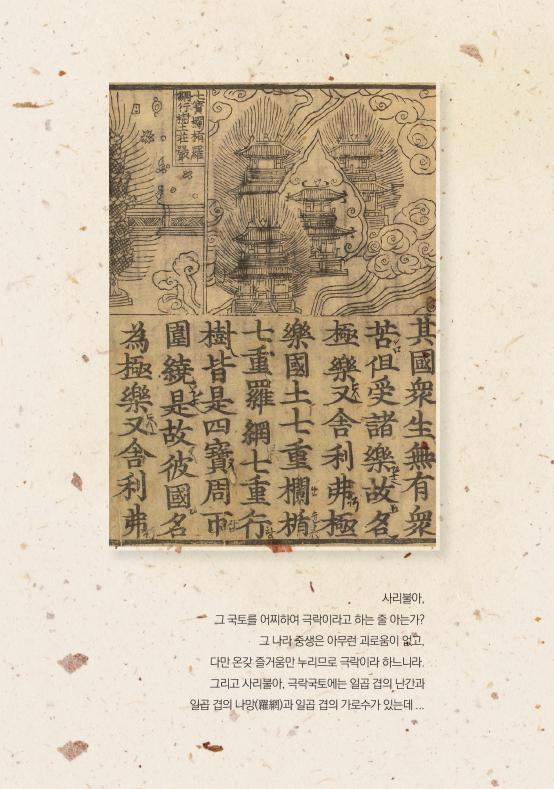 七寶欄楯羅
網行樹莊嚴
其國衆生無有衆
苦但受諸樂故名
極樂又舍利弗極
樂國土七重欄楯
七重羅網七重行
樹皆是四寶周帀
圍繞是故彼國名
為極樂又舍利弗
사리불아,
그 국토를 어찌하여 극락이라고 하는 줄 아는가?
그 나라 중생은 아무런 괴로움이 없고,
다만 온갖 즐거움만 누리므로 극락이라 하느니라.
그리고 사리불아, 극락국토에는 일곱 겹의 난간과
일곱 겹의 나망(羅網)과 일곱 겹의 가로수가 있는데 ...